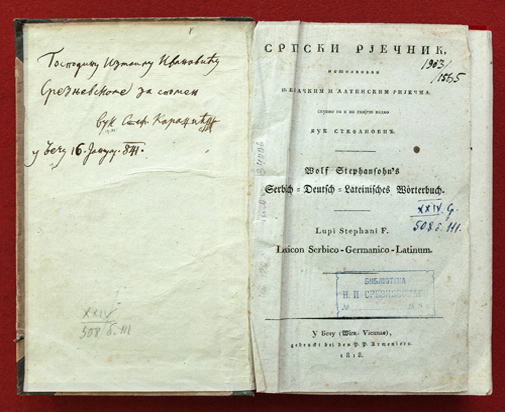 Господину Измаилу Ивановићу
Срезневскоме за спомен
Вук Стеф. Караџић
у Бечу 16. Јануар. 841.
XXIV
508 б. III
СРПСКИ РЈЕЧНИК,
истолкован
њемачким и латинским ријечма.
скупио га и на свијет издао
ВУК СТЕФАНОВИЋ.
Wolf Stephansohn's
Serbisch=Deutsch=Lateinisches Wörterbuch.
Lupi Stephani F.
Lexicon Serbico-Germanico-Latinum.
XXIV.
508 б. III.
БИБЛІОТЕКА
И. И. СРЕЗНЕВСКАГО
№
У Бечу (Wien, Viennae),
gedruckt bei den P. P. Armeniern.
1818.